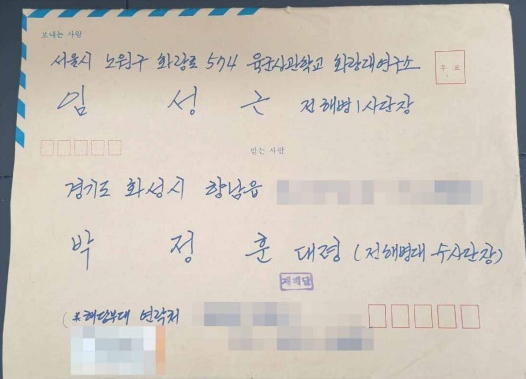 보내는 사람
서울시 노원구 화랑로 574 육군사관학교 화랑대연구소
우 표
임 성 근 전 해병1사단장
받는 사람
경기도 화성시 향남읍
박 정 훈 대령 (전 해병대 수사단장)
재배달
(※해당부대 연락처